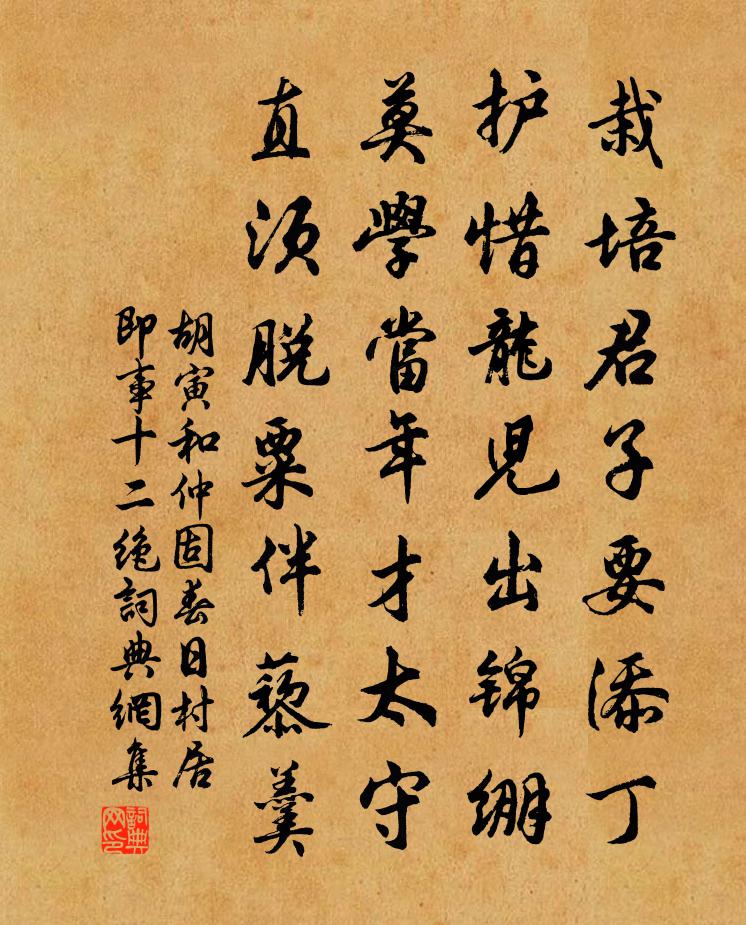 栽培君子要添丁
护惜龍児出锦绷
莫學當年才太守
直须脱粟伴藜羹
胡寅和仲固春日村居
即事十二绝詞典網集
詞典网印